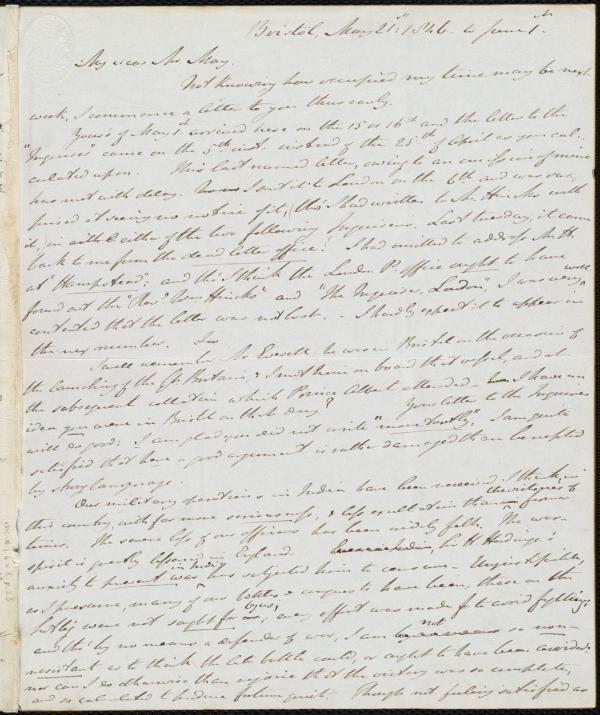 Bristol, May 21st 1846. to June 1st.
My dear Mr. May.
Not knowing how occupied my time may be next
week, I commence a letter to you thus early.
Yours of May 1st arrived here on the 15 or 16th and the letter to the
"Inquirer" came on the 5th inst. instead of the 25th of April as you cal-
culated upon. This last named letter, owing to an omission of mine
has met with delay. I sent it to London on the 6th and was sur-
prised at seeing no notice of it, (tho' I had written to Mr. Hincks with
it,) in either of the two following Inquirers. Last tuesday, it came
back to me from the dead letter office! I had omitted to address Mr. H.
at "Hampstead"; and tho' I think the London P. office ought to have
found out the "Revd. Wm. Hincks" and "The Inquirer, London," I was very well
contented that the letter was not lost. - I hardly expect it to appear in
the next number.
I well remember Mr. Everett. he was in Bristol on the occasion of
the launching of the Gt. Britain, & I met him on board that vessel, and at
the subsequent collation which Prince Albert attended. I have an
idea you were in Bristol on that day? Your letter to the Inquirer
will do good: I am glad you did not write "more tartly." I am quite
satisfied that have a good argument is rather damaged than benefited
by strong language.
Our military operations in India have been received, I think, in
this country, with far more seriousness, & less exultation than the victories of former
times. The severe loss of our officers has been widely felt. The war-
spirit is greatly lessened in England. Sir H. Hardinge's
anxiety to prevent war in India has subjected him to censure. Unjustifiable,
as I presume, many of our battles & conquests to have been, those on the
Sutlej were not sought for by us, every effort was made to avoid fighting,
and tho' by no means a defender of war, I am not so non-
resistant as to think the late battle could, or ought to have been avoided:
nor can I do otherwise than rejoice that the victory was so complete,
and so calculated to produce future quiet. Though not feeling satisfied as